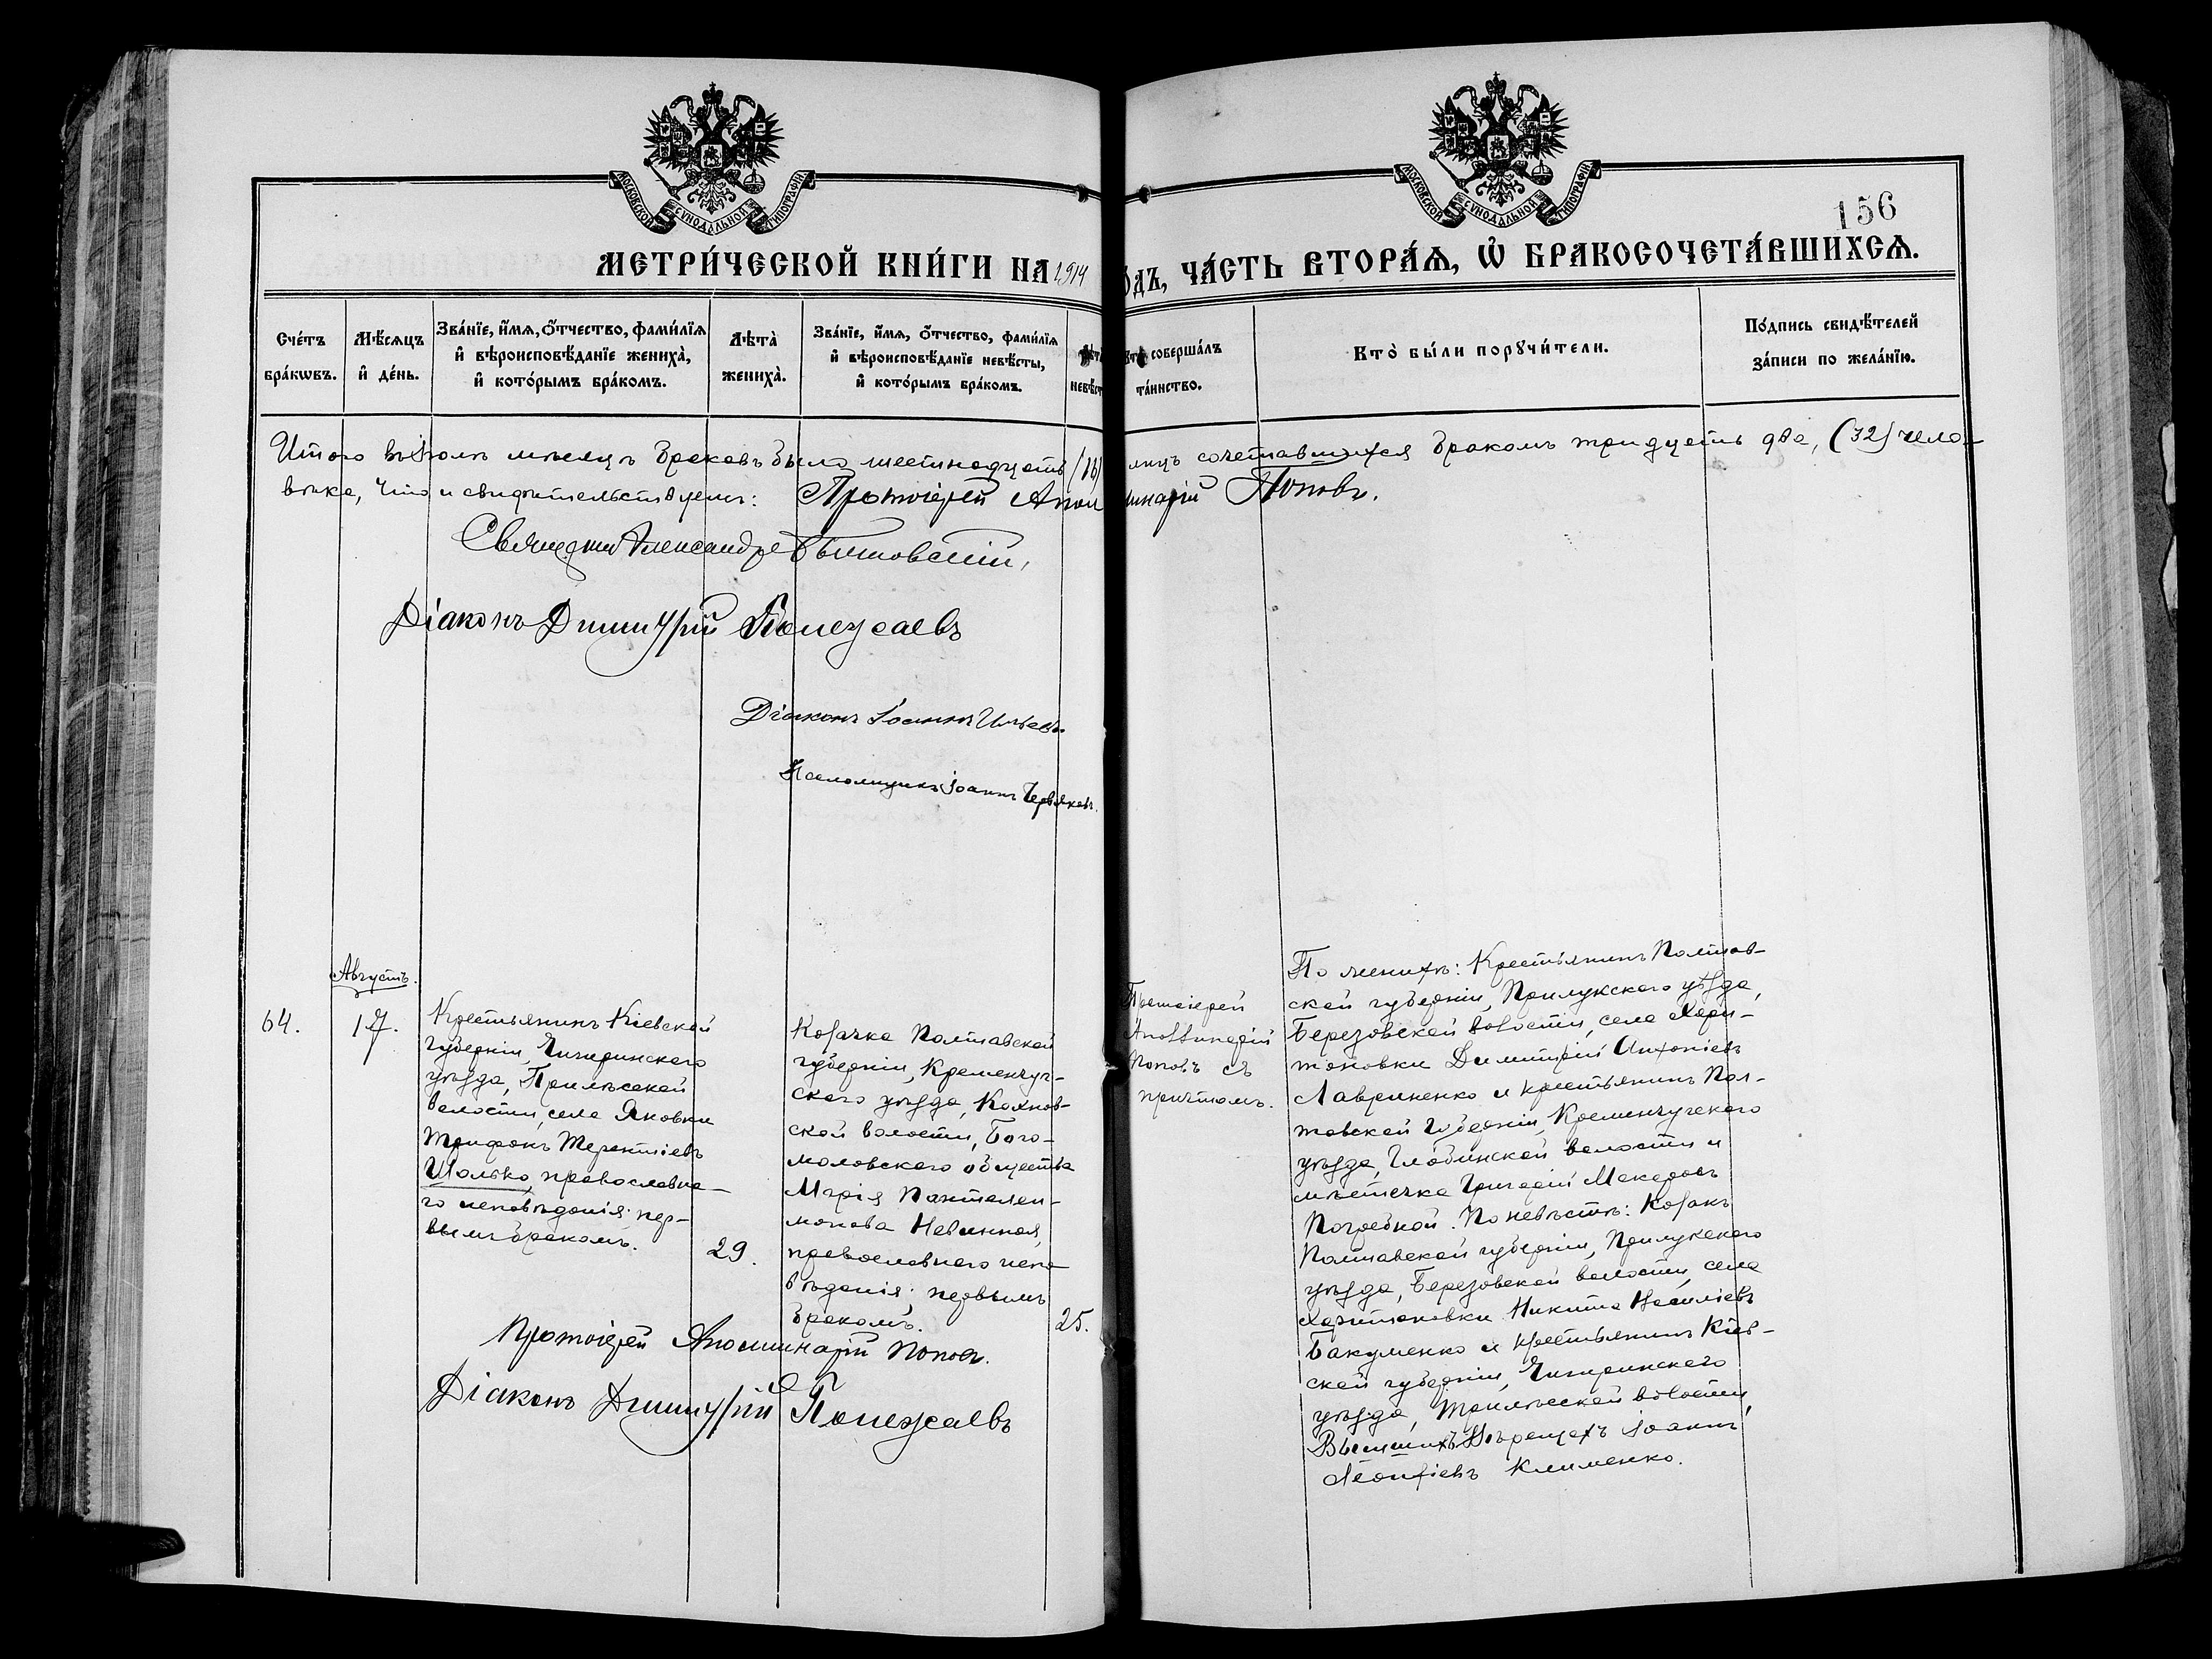 МОСКОВСКОЙ СѴНОДАЛЬНОЙ ТИПОГРАФІИ.
МОСКОВСКОЙ СѴНОДАЛЬНОЙ ТИПОГРАФІИ.
156
МЕТРИ́ЧЕСКОЙ КНИ́ГИ НА 1914
ОДЪ, ЧА́СТЬ ВТОРА́Ѧ, Ѡ БРАКОСОЧЕТА́ВШИХСѦ.
Сче́тъ бра́кѡвъ.
Мѣ́сяцъ и де́нь.
Зва́нїе, и́мѧ, о́тчество, фами́лїѧ
и вѣроисповѣ́данїе жениха̀,
и кото́рымъ бра́комъ.
Лѣта̀
жениха̀.
Зва́нїе, и́мѧ, о́тчество, фами́лїѧ
и вѣроисповѣ́данїе невѣ́сты,
и кото́рымъ бра́комъ.
Лѣта
невѣст
Кто совершáлъ
та́инство.
Кто̀ бы́ли порꙋчи́тели.
По́дпись свидѣ́телей
за́писи по жела́нїю.
Итого въ Іюлѣ мѣсяцѣ браковъ было шестнадцать (16) лицъ сочетавшихся бракомъ тридцать два, (32) чело-
вѣка, что и свидѣтельствуемъ: Протоіерей Аполлинарій Поповъ.
Священникъ Александръ
Діаконъ Димитрій Полежаевъ
Діаконъ Іоаннъ Ильевъ.
Псаломщикъ Іоаннъ Червяковъ.
Августъ.
64.
17.
Крестьянинъ Кіевской
губерніи, Чигиринскаго
уѣзда, Трилѣсской
волости, села Яновки
Трифонъ Терентіевъ
Шолько, православна-
го исповѣданія; пер-
вымъ бракомъ.
29.
Козачка Полтавской
губерніи, Кременчуг-
скаго уѣзда, Кохнов-
ской волости, Бого-
моловскаго общества
Марія Пантелеи-
монова Невинная,
православнаго испо-
вѣданія; первымъ
бракомъ.
25.
Протоіерей
Аполлинарій
Поповъ съ
причтомъ.
По женихѣ: Крестьянинъ Полтав-
ской губерніи, Прилукскаго уѣзда,
Березовской волости, села Хари-
тоновки Димитрій Антоніевъ
Лавриненко и крестьянинъ Пол-
тавской губерніи, Кременчугскаго
уѣзда, Глобинской волости и
мѣстечка Григорій Макаровъ
Погребной. По невѣстѣ: Козакъ
Полтавской губерніи, Прилукскаго
уѣзда, Березовской волости, села
Харитоновки Никита Василіевъ
Бакуменко и крестьянинъ Кіев-
ской губерніи, Чигиринскаго
уѣзда, Трилѣсской волости,
Высшихъ Верещакъ Іоаннъ
Леонтіевъ Клименко.
Протоіерей Аполлинарій Поповъ.
Діаконъ Димитрій Полежаевъ